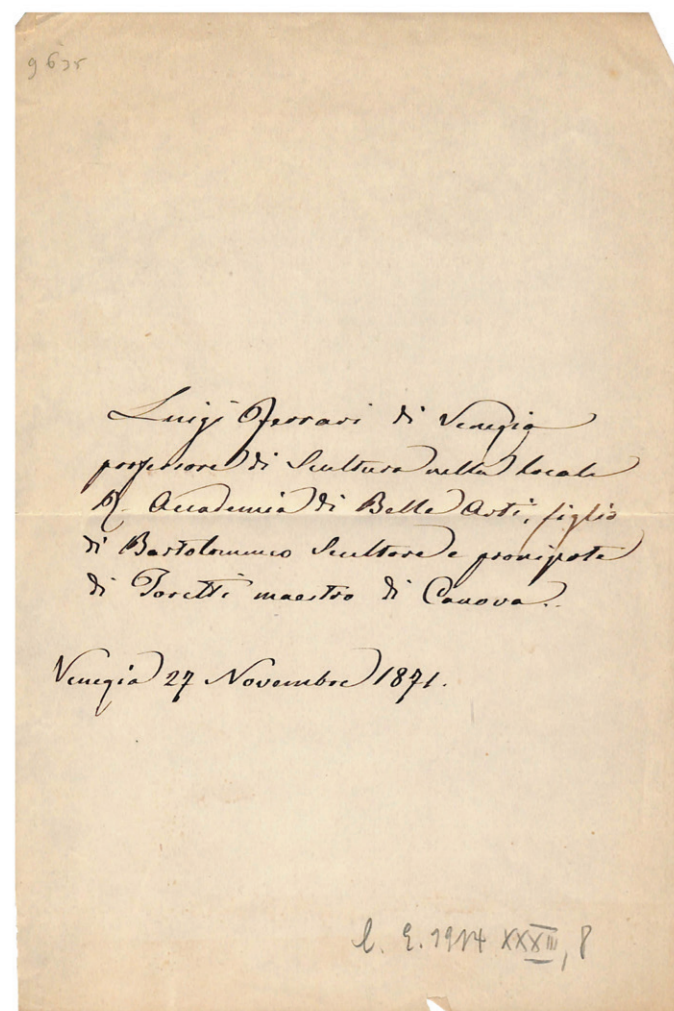 9635
Luigi Ferrari di Venezia
professore di Scultura nella locale
R. Accademia di Belle Arti, figlio
di Bartolommeo Scultore e pronipote
di Toretti maestro di Canova.
Venezia 27 Novembre 1871.
1914 XXXIII, 8